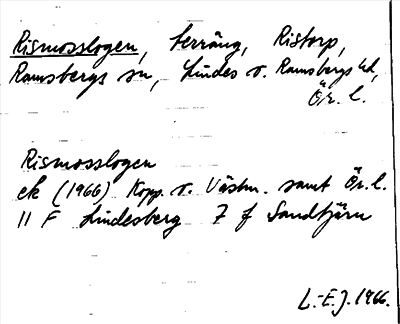 Rismosslogen, terräng, Ristorp,
Ramsbergs sn, Lindes o. Ramsbergs hd,
Ör. l.
Rismosslogen
ek (1966) Kopp. o. Västm. samt Ör. l.
11 F Lindesberg 7 f Sandtjärn
L.-E.J. 1966.